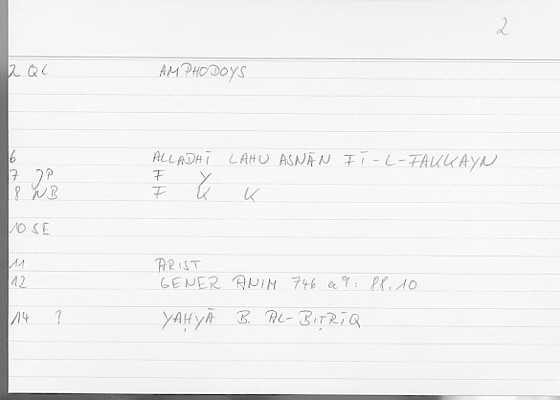 2
2 QL AMPHODOYS
6 ALLADHĪ LAHU ASNĀN FĪ-L-FAKKAYN
7 JP F Y
8 NB F K K
10 SE
11 ARIST
12 GENER ANIM 746 a 9: 88.10
14 ? YAḤYĀ B. AL-BIṬRĪQ